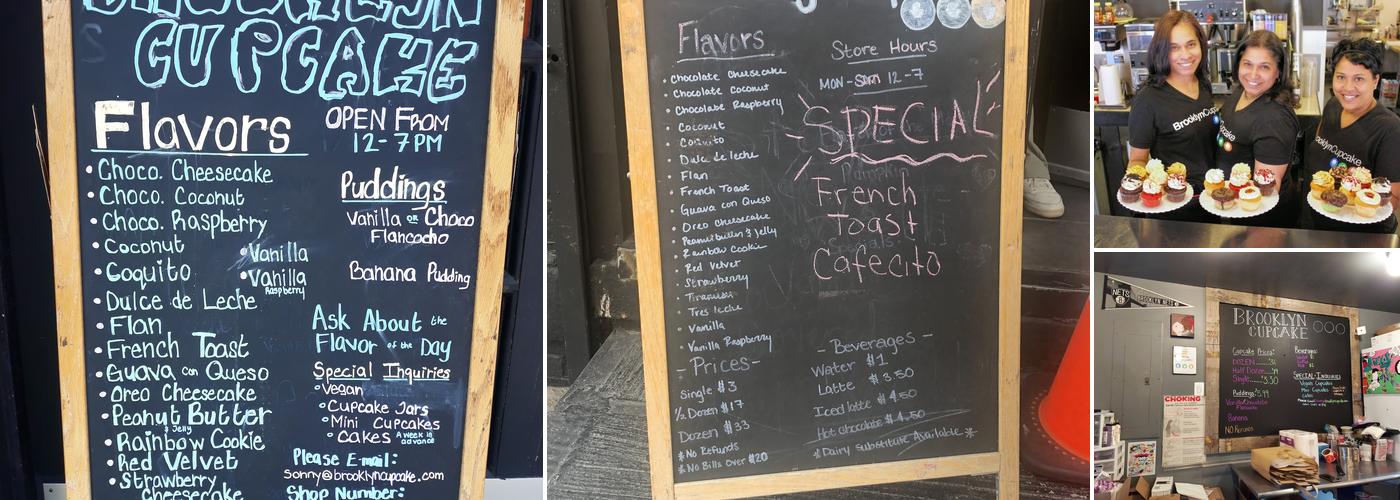 BROOKLYN
CUPCAKE
Flavors
• Choco. Cheesecake
• Choco. Coconut
• Choco. Raspberry
• Coconut
• Coquito
• Dulce de Leche
• Flan
• French Toast
• Guava con Queso
• Oreo Cheesecake
• Peanut Butter
& Jelly
• Rainbow Cookie
• Red Velvet
• Strawberry
Cheesecake
• Vanilla
• Vanilla
Raspberry
OPEN FROM
12-7PM
Puddings
Vanilla OR Choco
Flancocho
Banana Pudding
Ask About the
Flavor of the Day
Special Inquiries
• Vegan
• Cupcake Jars
• Mini Cupcakes
• Cakes A week in
advance
Please E-mail:
sonny@brooklyncupcake.com
Shop Number:
Flavors
• Chocolate Cheesecake
• Chocolate Coconut
• Chocolate Raspberry
• Coconut
• Coquito
• Dulce de leche
• Flan
• French Toast
• Guava con Queso
• Oreo cheesecake
• Peanut butter & Jelly
• Rainbow Cookie
• Red Velvet
• Strawberry
• Tiramisu
• Tres leche
• Vanilla
• Vanilla Raspberry
- Prices -
Single $3
½ Dozen $17
Dozen $33
* No Refunds
* No Bills Over $20
Store Hours
MON - 12-7
SPECIAL
French
Toast
Cafecito
- Beverages -
Water $1
Latte $3.50
Iced latte $4.50
Hot chocolate $4.50
* Dairy Substitute Available *
BrooklynCupcake
BrooklynCupcake
NETS
BROOKLYN NETS
BROOKLYN
CUPCAKE
Cupcake Prices:
DOZEN
Half Dozen
Single 3.50
Puddings
Banana
NO Refunds
Beverages:
SPECIAL INQUIRIES
Vegan Cupcakes
Mini Cupcakes
Cakes
CHOKING